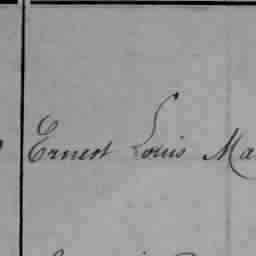 Ernest Louis Ma